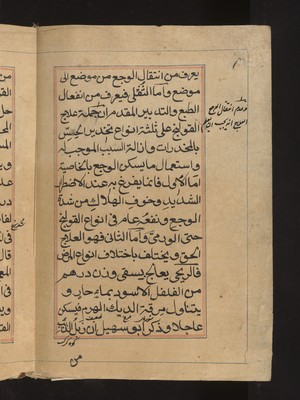 يعرف من انتقال الوجع من موضع الى
موضع واما الثفلى فيعرف من انفعال
الطبع والتدبير المقدم ان جملة علاج
القولنج على ثلثة انواع تخدير الحس
بالمخدرات وازالة السبب الموجب له
واستعمال ما يسكن الوجع بالخاصية
اما الاول فانما يفزع به عند الاضطرار
الشديد وخوف الهلاك من شدة
الوجع ونفعه عام فى انواع القولنج
حتى الورمى واما الثانى فهو العلاج
الحق ويختلف باختلاف انواع المرض
فالريحى يعالج بسقى وزن درهم
من الفلفل الاسود بماء حار و
يتناول مرقة الديك الهرم فيسكن
عاجلا وذكر ابو سهيل ان ذبل الذئب
من